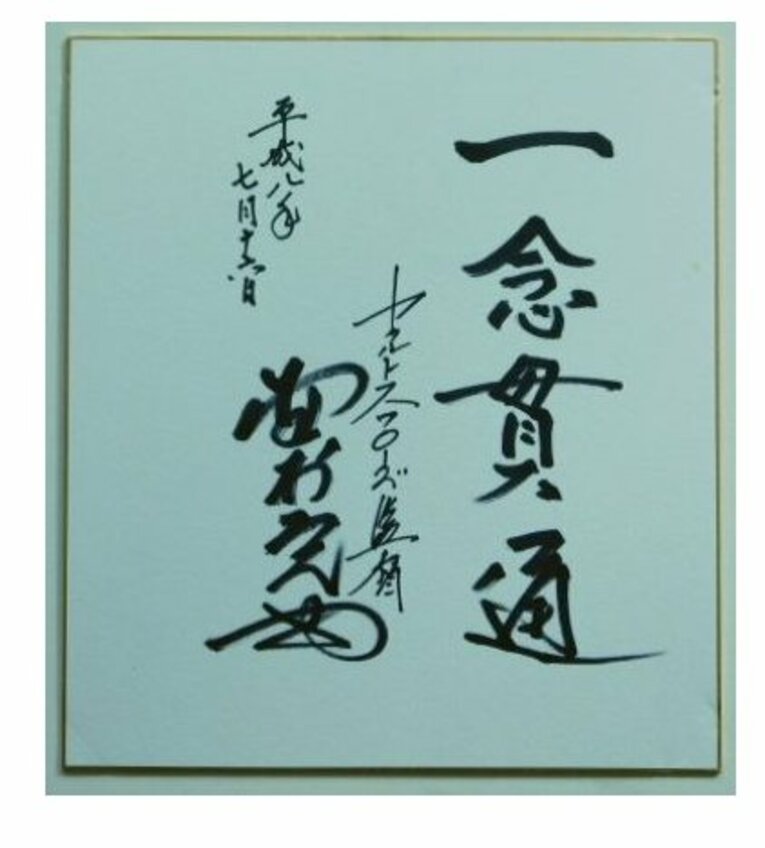 一念貫通
ヤクルトスワローズ監督
野村克也
平成八年
七月十六日